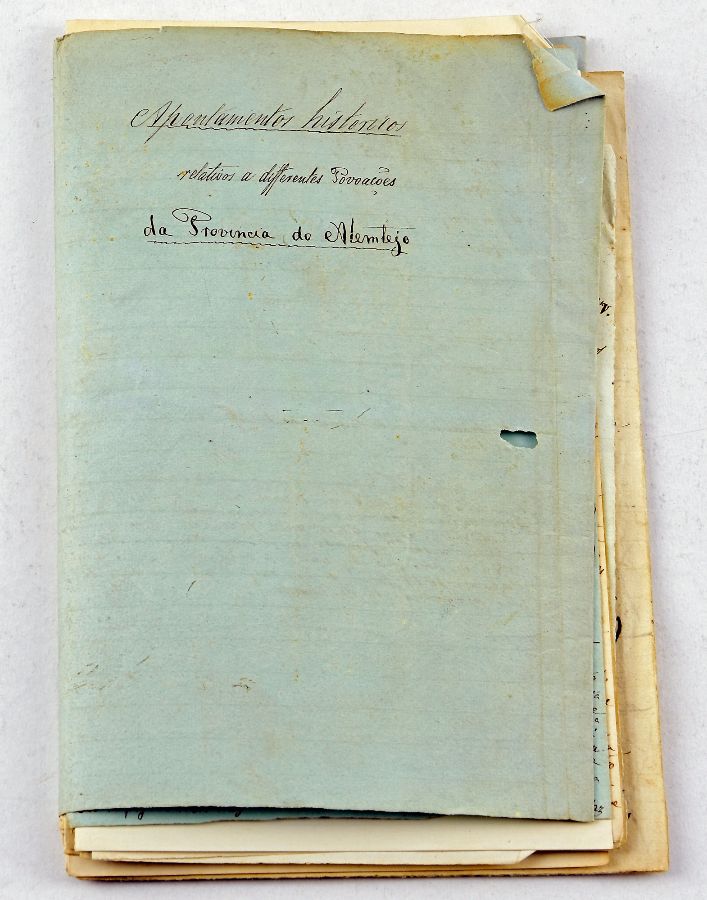 Apontamentos historicos
relativos a differentes Povoações
da Provincia do Alemtejo